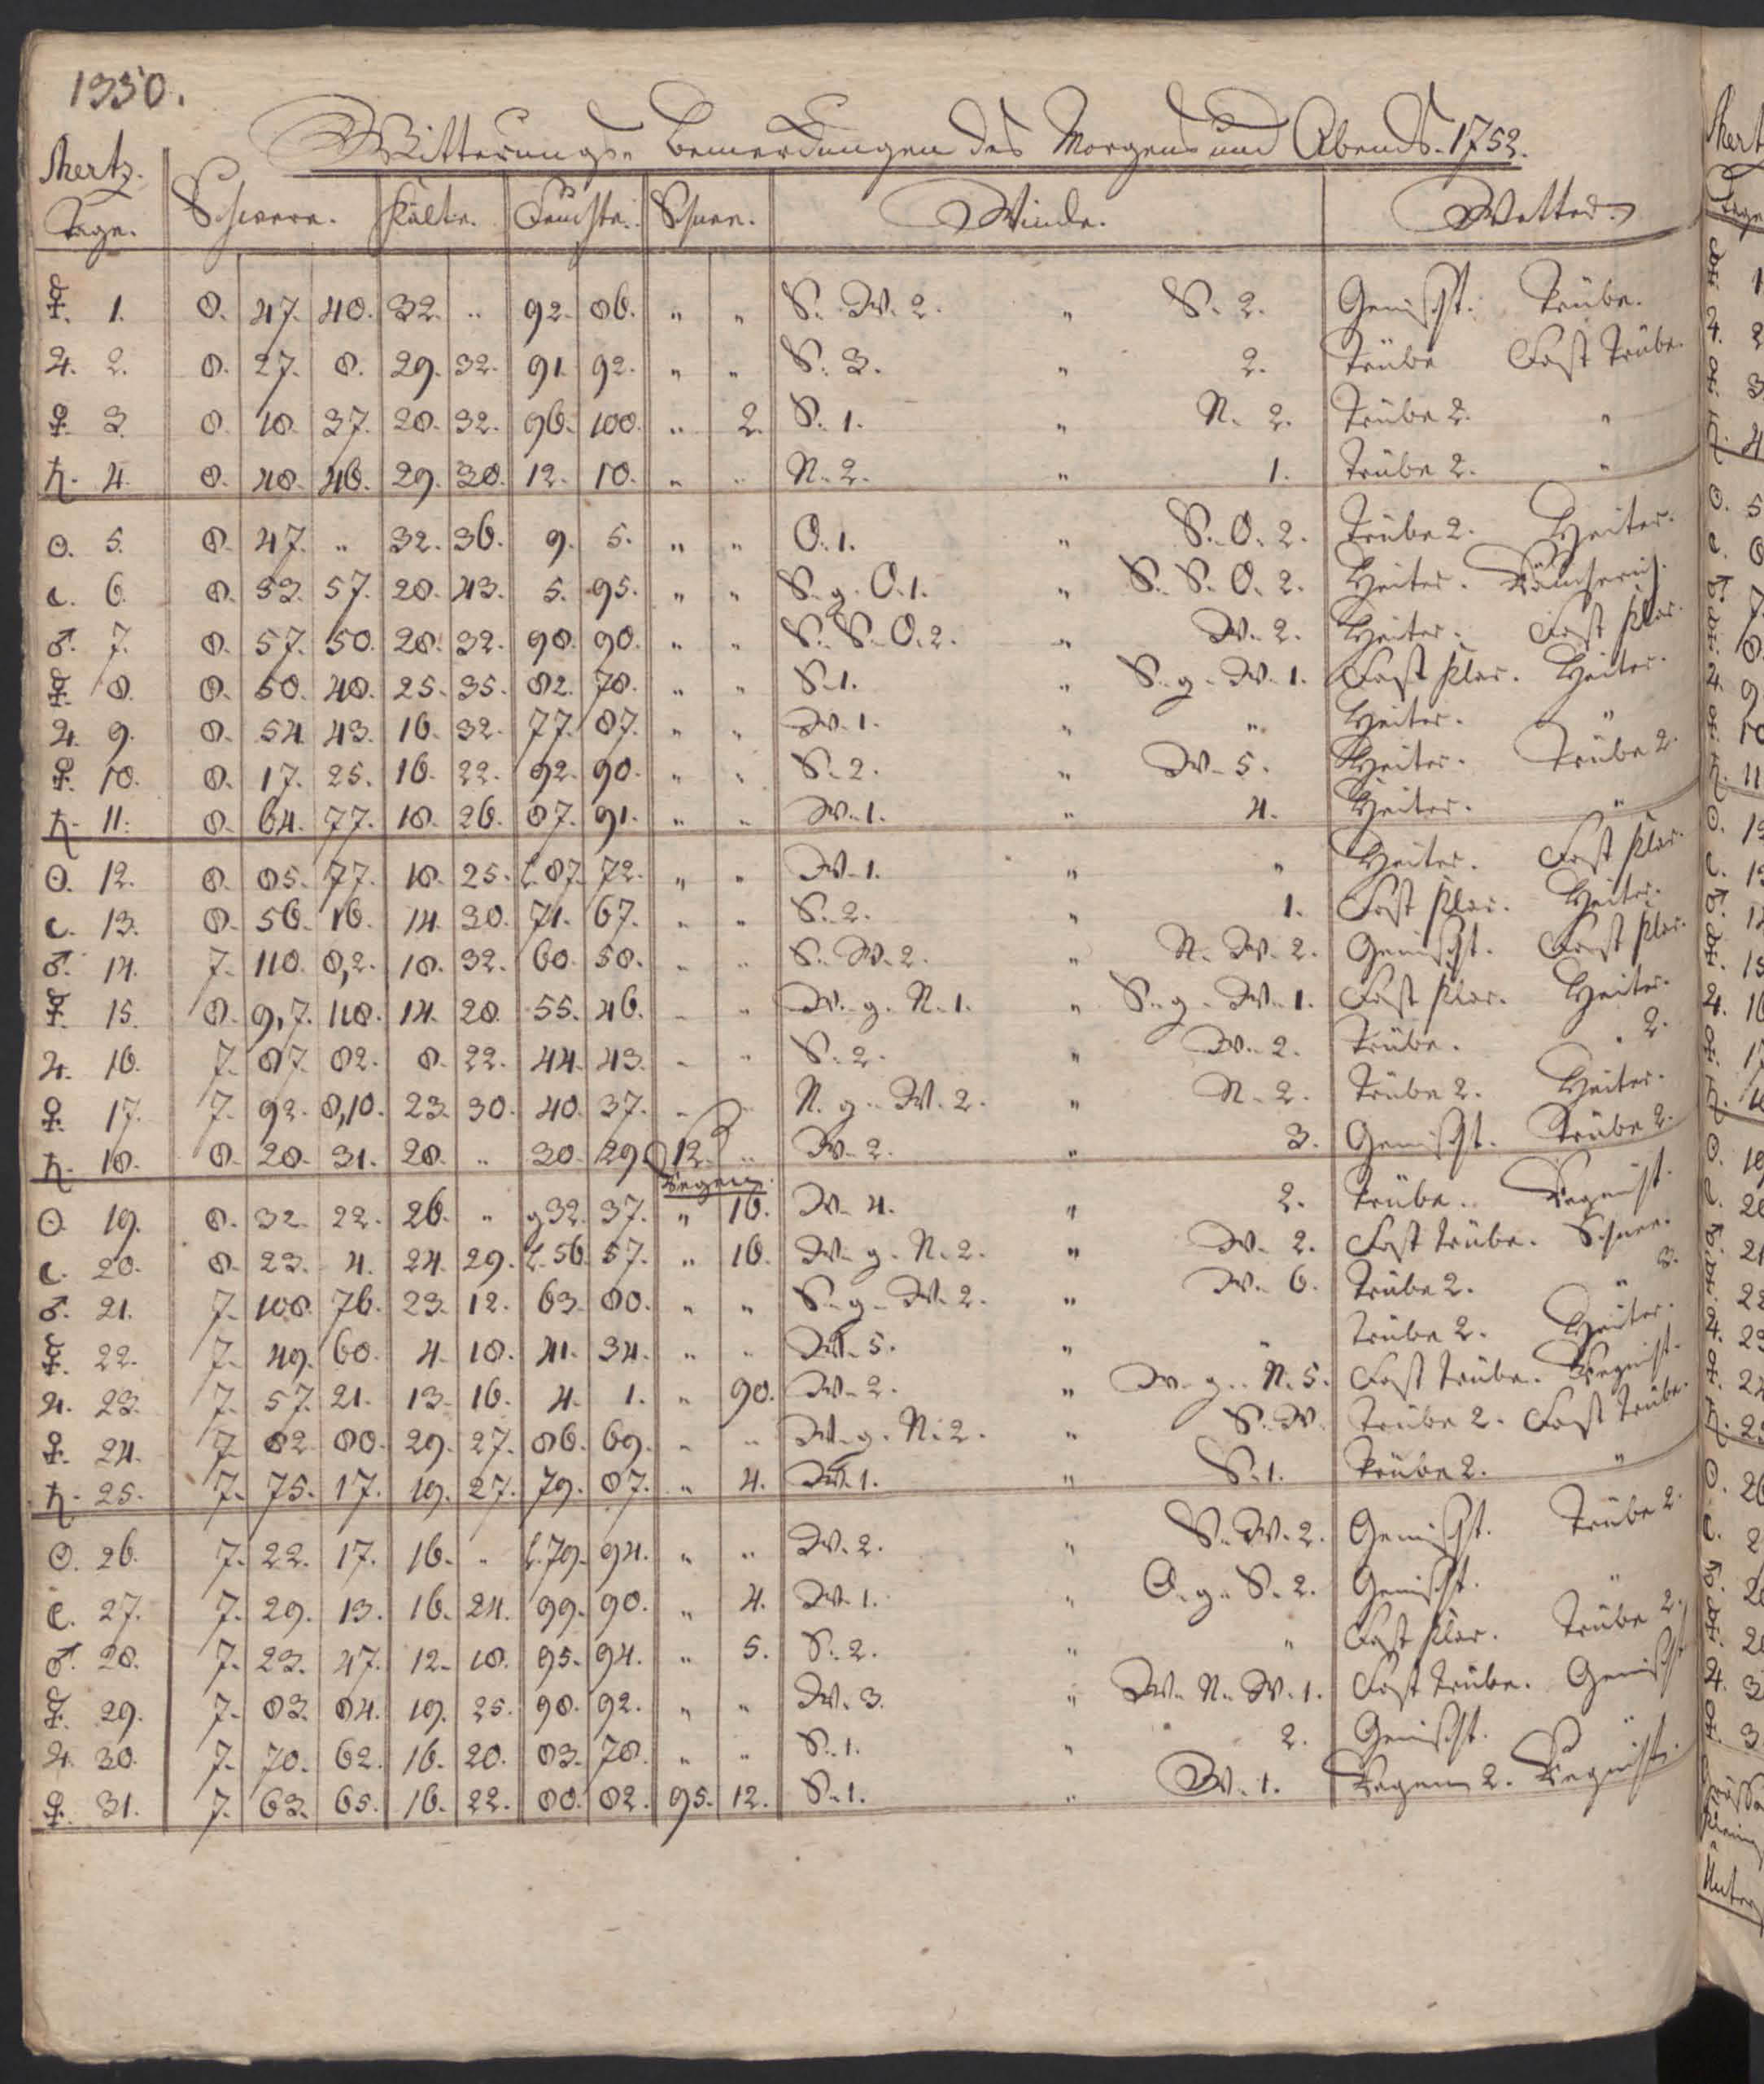 1330.
Witterungs- Bemerckungen des Morgens und Abends. 1752.
Mertz.
Tage. Schwere. Kälte. Feuchte. Schnee. Winde. Wetter.
☿. 1. 8. 47. 40. 32. " 92. 86. " " S. W. 2. " S. 2. Gemischt. Trübe.
♃. 2. 8. 27. 8. 29. 32. 91. 92. " " S. 3. " 2. Trübe Fast Trübe.
♀. 3. 8. 18. 37. 28. 32. 96. 100. " 2. S. 1. " N. 2. Trübe 2. "
♄. 4. 8. 48. 46. 29. 30. 12. 10. " " N. 2. " 1. Trübe 2. "
☉. 5. 8. 47. " 32. 36. 9. 5. " " O. 1. " S. O. 2. Trübe 2. Heiter.
☾. 6. 8. 53. 57. 28. 43. 5. 95. " " S. g. O. 1. " S. S. O. 2. Heiter.
♂. 7. 8. 57. 50. 28. 32. 98. 90. " " S. S. O. 2. " W. 2. Heiter. Fast klar.
☿. 8. 8. 50. 48. 25. 35. 82. 78. " " S. 1. " S. g. W. 1. Fast klar. Heiter.
♃. 9. 8. 54. 43. 16. 32. 77. 87. " " W. 1. " " Heiter. "
♀. 10. 8. 17. 25. 16. 22. 92. 90. " " S. 2. " W. 5. Heiter. Trübe 2.
♄. 11. 8. 64. 77. 18. 26. 87. 91. " " W. 1. " 4. Heiter. "
☉. 12. 8. 85. 77. 18. 25. l. 87. 72. " " W. 1. " " Heiter. Fast klar.
☾. 13. 8. 56. 16. 14. 30. 71. 67. " " S. 2. " 1. Fast klar. Heiter.
♂. 14. 7. 110. 8,2. 18. 32. 60. 58. " " S. W. 2. " N. W. 2. Gemischt. Fast klar.
☿. 15. 8. 9,7. 118. 14. 28. 55. 46. " " W. g. N. 1. " S. g. W. 1. Fast klar. Heiter.
♃. 16. 7. 87. 82. 8. 22. 44. 43. " " S. 2. " W. 2. Trübe. " 2.
♀. 17. 7. 92. 8,10. 23. 30. 40. 37. " " N. g. W. 2. " N. 2. Trübe 2. Heiter.
♄. 18. 8. 28. 31. 28. " 30. 29. 12. " W. 2. " 3. Gemischt. Trübe 2.
Regen.
☉. 19. 8. 32. 22. 26. " g 32. 37. " 16. W. 4. " 2. Trübe. Regnicht.
☾. 20. 8. 23. 4. 24. 29. l. 56. 57. " 16. W. g. N. 2. " W. 2. Fast trübe. Schnee.
♂. 21. 7. 108. 76. 23. 12. 63. 80. " " S. g. W. 2. " W. 6. Trübe 2. " 3.
☿. 22. 7. 49. 60. 4. 18. 41. 34. " " W. 5. " " Trübe 2. Heiter.
♃. 23. 7. 57. 21. 13. 16. 4. 1. " 90. W. 2. " W. g. N. 5. Fast trübe. Regnicht.
♀. 24. 7. 82. 80. 29. 27. 86. 69. " " W. g. N. 2. " S. W. Trübe 2. Fast trübe.
♄. 25. 7. 75. 17. 19. 27. 79. 87. " 4. W. 1. " S. 1. Trübe 2. "
☉. 26. 7. 22. 17. 16. " l. 79. 94. " " W. 2. " S. W. 2. Gemischt. Trübe 2.
☾. 27. 7. 29. 13. 16. 24. 99. 90. " 4. W. 1. " O. g. S. 2. Gemischt. "
♂. 28. 7. 23. 47. 12. 18. 95. 94. " 5. S. 2. " " Fast klar. Trübe 2.
☿. 29. 7. 83. 84. 19. 25. 98. 92. " " W. 3. " W. N. W. 1. Fast trübe. Gemischt
♃. 30. 7. 70. 62. 16. 20. 83. 78. " " S. 1. " 2. Gemischt. "
♀. 31. 7. 63. 65. 16. 22. 80. 82. 95. 12. S. 1. " W. 1. Regen 2. Regnicht.